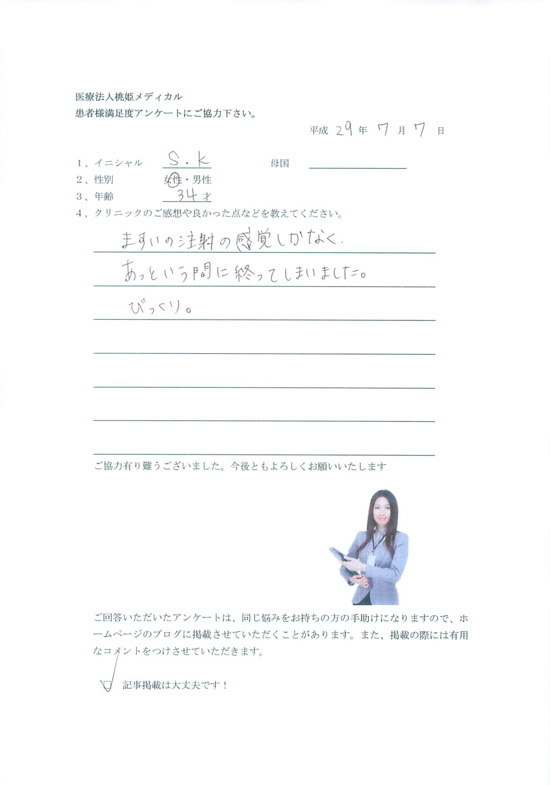 医療法人桃姫メディカル
患者様満足度アンケートにご協力下さい。
平成 29 年 7 月 7 日
1、イニシャル S.K 母国
2、性別 女性・男性
3、年齢 34才
4、クリニックのご感想や良かった点などを教えてください。
ますいの注射の感覚しかなく、
あっという間に終ってしまいました。
びっくり。
ご協力有り難うございました。今後ともよろしくお願いいたします
ご回答いただいたアンケートは、同じ悩みをお持ちの方の手助けになりますので、ホ
ームページのブログに掲載させていただくことがあります。また、掲載の際には有用
なコメントをつけさせていただきます。
記事掲載は大丈夫です！